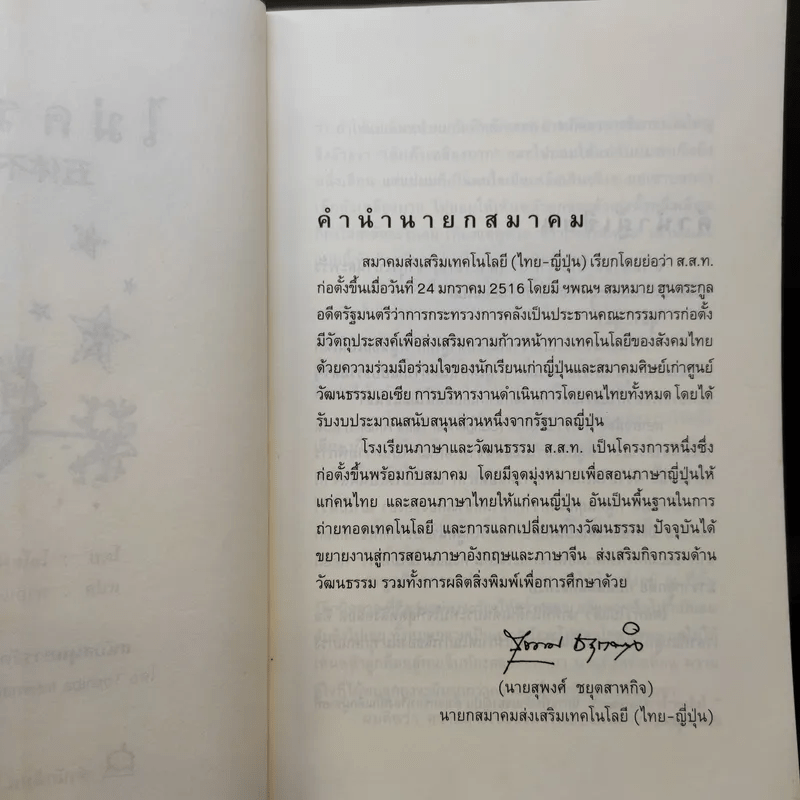 ไม่คร
คำนำนายกสมาคม
สมาคมส่งเสริมเทคโนโลยี (ไทย-ญี่ปุ่น) เรียกโดยย่อว่า ส.ส.ท.
ก่อตั้งขึ้นเมื่อวันที่ 24 มกราคม 2516 โดยมี ฯพณฯ สมหมาย ฮุนตระกูล
อดีตรัฐมนตรีว่าการกระทรวงการคลังเป็นประธานคณะกรรมการก่อตั้ง
มีวัตถุประสงค์เพื่อส่งเสริมความก้าวหน้าทางเทคโนโลยีของสังคมไทย
ด้วยความร่วมมือร่วมใจของนักเรียนเก่าญี่ปุ่นและสมาคมศิษย์เก่าศูนย์
วัฒนธรรมเอเซีย การบริหารงานดำเนินการโดยคนไทยทั้งหมด โดยได้
รับงบประมาณสนับสนุนส่วนหนึ่งจากรัฐบาลญี่ปุ่น
โรงเรียนภาษาและวัฒนธรรม ส.ส.ท. เป็นโครงการหนึ่งซึ่ง
ก่อตั้งขึ้นพร้อมกับสมาคม โดยมีจุดมุ่งหมายเพื่อสอนภาษาญี่ปุ่นให้
แก่คนไทย และสอนภาษาไทยให้แก่คนญี่ปุ่น อันเป็นพื้นฐานในการ
ถ่ายทอดเทคโนโลยี และการแลกเปลี่ยนทางวัฒนธรรม ปัจจุบันได้
ขยายงานสู่การสอนภาษาอังกฤษและภาษาจีน ส่งเสริมกิจกรรมด้าน
วัฒนธรรม รวมทั้งการผลิตสิ่งพิมพ์เพื่อการศึกษาด้วย
(นายสุพงศ์ ชยุตสาหกิจ)
นายกสมาคมส่งเสริมเทคโนโลยี (ไทย-ญี่ปุ่น)